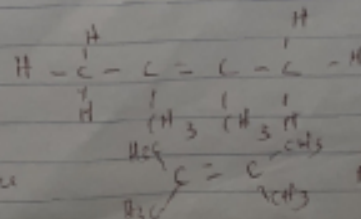 H H
H - C - C = C - C - H
H CH3 CH3 H
H3C CH3
C = C
H3C CH3